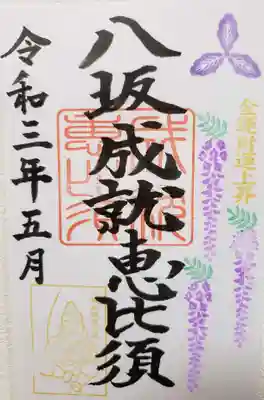 金運財運上昇
八坂成就恵比須
令和三年五月